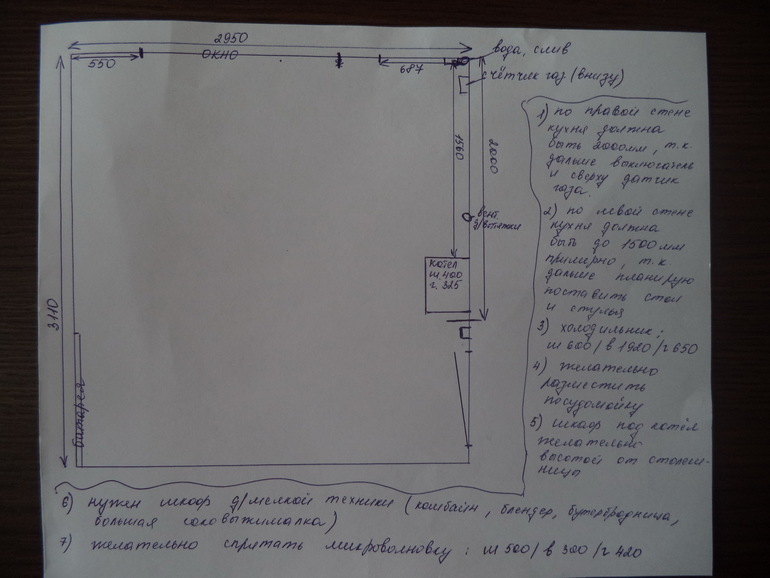 2950
вода, слив
550
окно
687
счётчик газ (внизу)
1560
2000
вент.
д/вытяжки
котел
ш. 400
г. 325
3110
батарея
1) по правой стене
кухня должна
быть 2000мм, т.к.
дальше выключатель
и сверху датчик
газа.
2) по левой стене
кухня должна
быть до 1500мм
примерно, т.к
дальше планирую
поставить стол
и стулья
3) холодильник:
ш 600/в 1920/г 650
4) желательно
разместить
посудомойку
5) шкаф под котёл
желательно
высотой от столеш-
ница
6) нужен шкаф д/мелкой техники (комбайн, блендер, бутербродница,
большая соковыжималка)
7) желательно спрятать микроволновку: ш 500/в 300/г 420